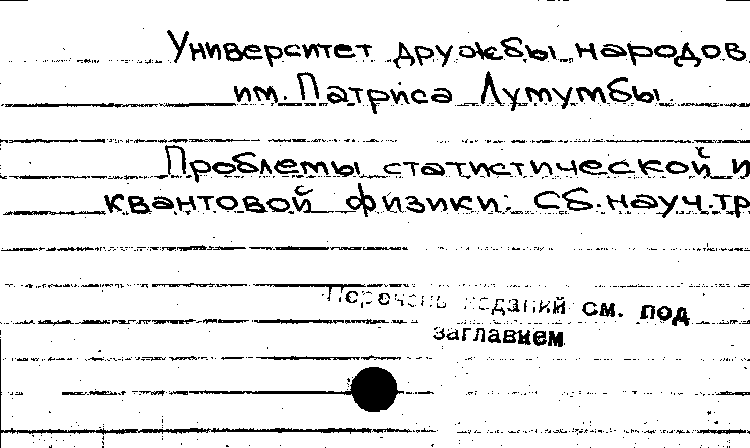 Университет дружбы народов
им. Патриса Лумумбы
Проблемы статистической и
квантовой физики: Сб. науч. тр
Перечень изданий см. под
заглавием